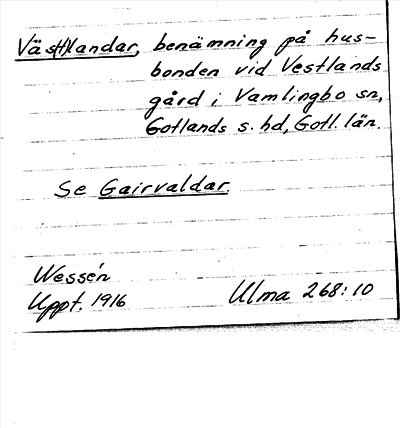 Västlandar, benämning på hus-
bonden vid Vestlands
gård i Vamlingbo sn,
Gotlands s. hd, Gotl. län.
Se Gairvaldar.
Wessén
Uppt. 1916 Ulma 268:10